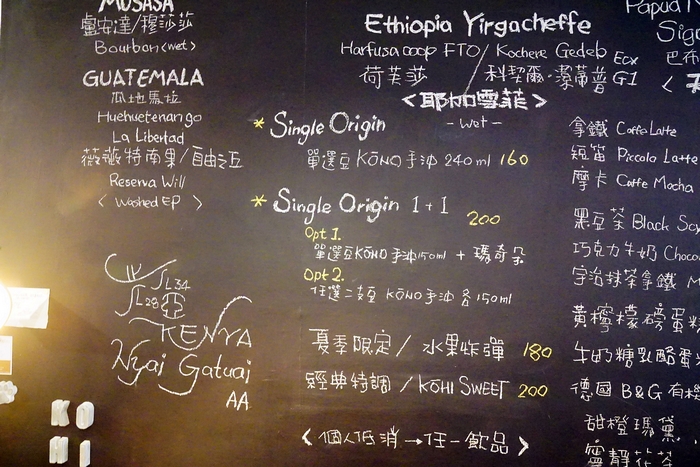 MUSASA
盧安達/穆莎莎
Bourbon <wet>
GUATEMALA
瓜地馬拉
Huehuetenango
La Libertad
薇薇特南果/自由
Reserva Will
< Washed EP >
SL34
SL28
KENYA
Nyai Gatuai
AA
KO
HI
Ethiopia Yirgacheffe
Harfusa coop FTO/ Kochere Gedeb Ecx
荷芙莎 / 科契爾·潔蒂普 G1
<耶加雪菲>
-wet-
* Single Origin
單選豆 KŌNO 手沖 240ml 160
* Single Origin 1+1 200
Opt 1.
單選豆 KŌNO 手沖 150ml + 瑪奇朵
Opt 2.
任選二支豆 KŌNO 手沖 各 150ml
夏季限定 / 水果炸彈 180
經典特調 / KŌHI SWEET 200
<個人低消→任一飲品>
Papua
巴布
拿鐵 Caffe Latte
短笛 Piccolo Latte
摩卡 Caffe Mocha
黑豆茶 Black Soy
巧克力牛奶 Choco
宇治抹茶拿鐵 M
黃檸檬磅蛋糕
牛奶糖乳酪蛋
德國 B&G 有機
甜橙瑪黛
寧靜花茶